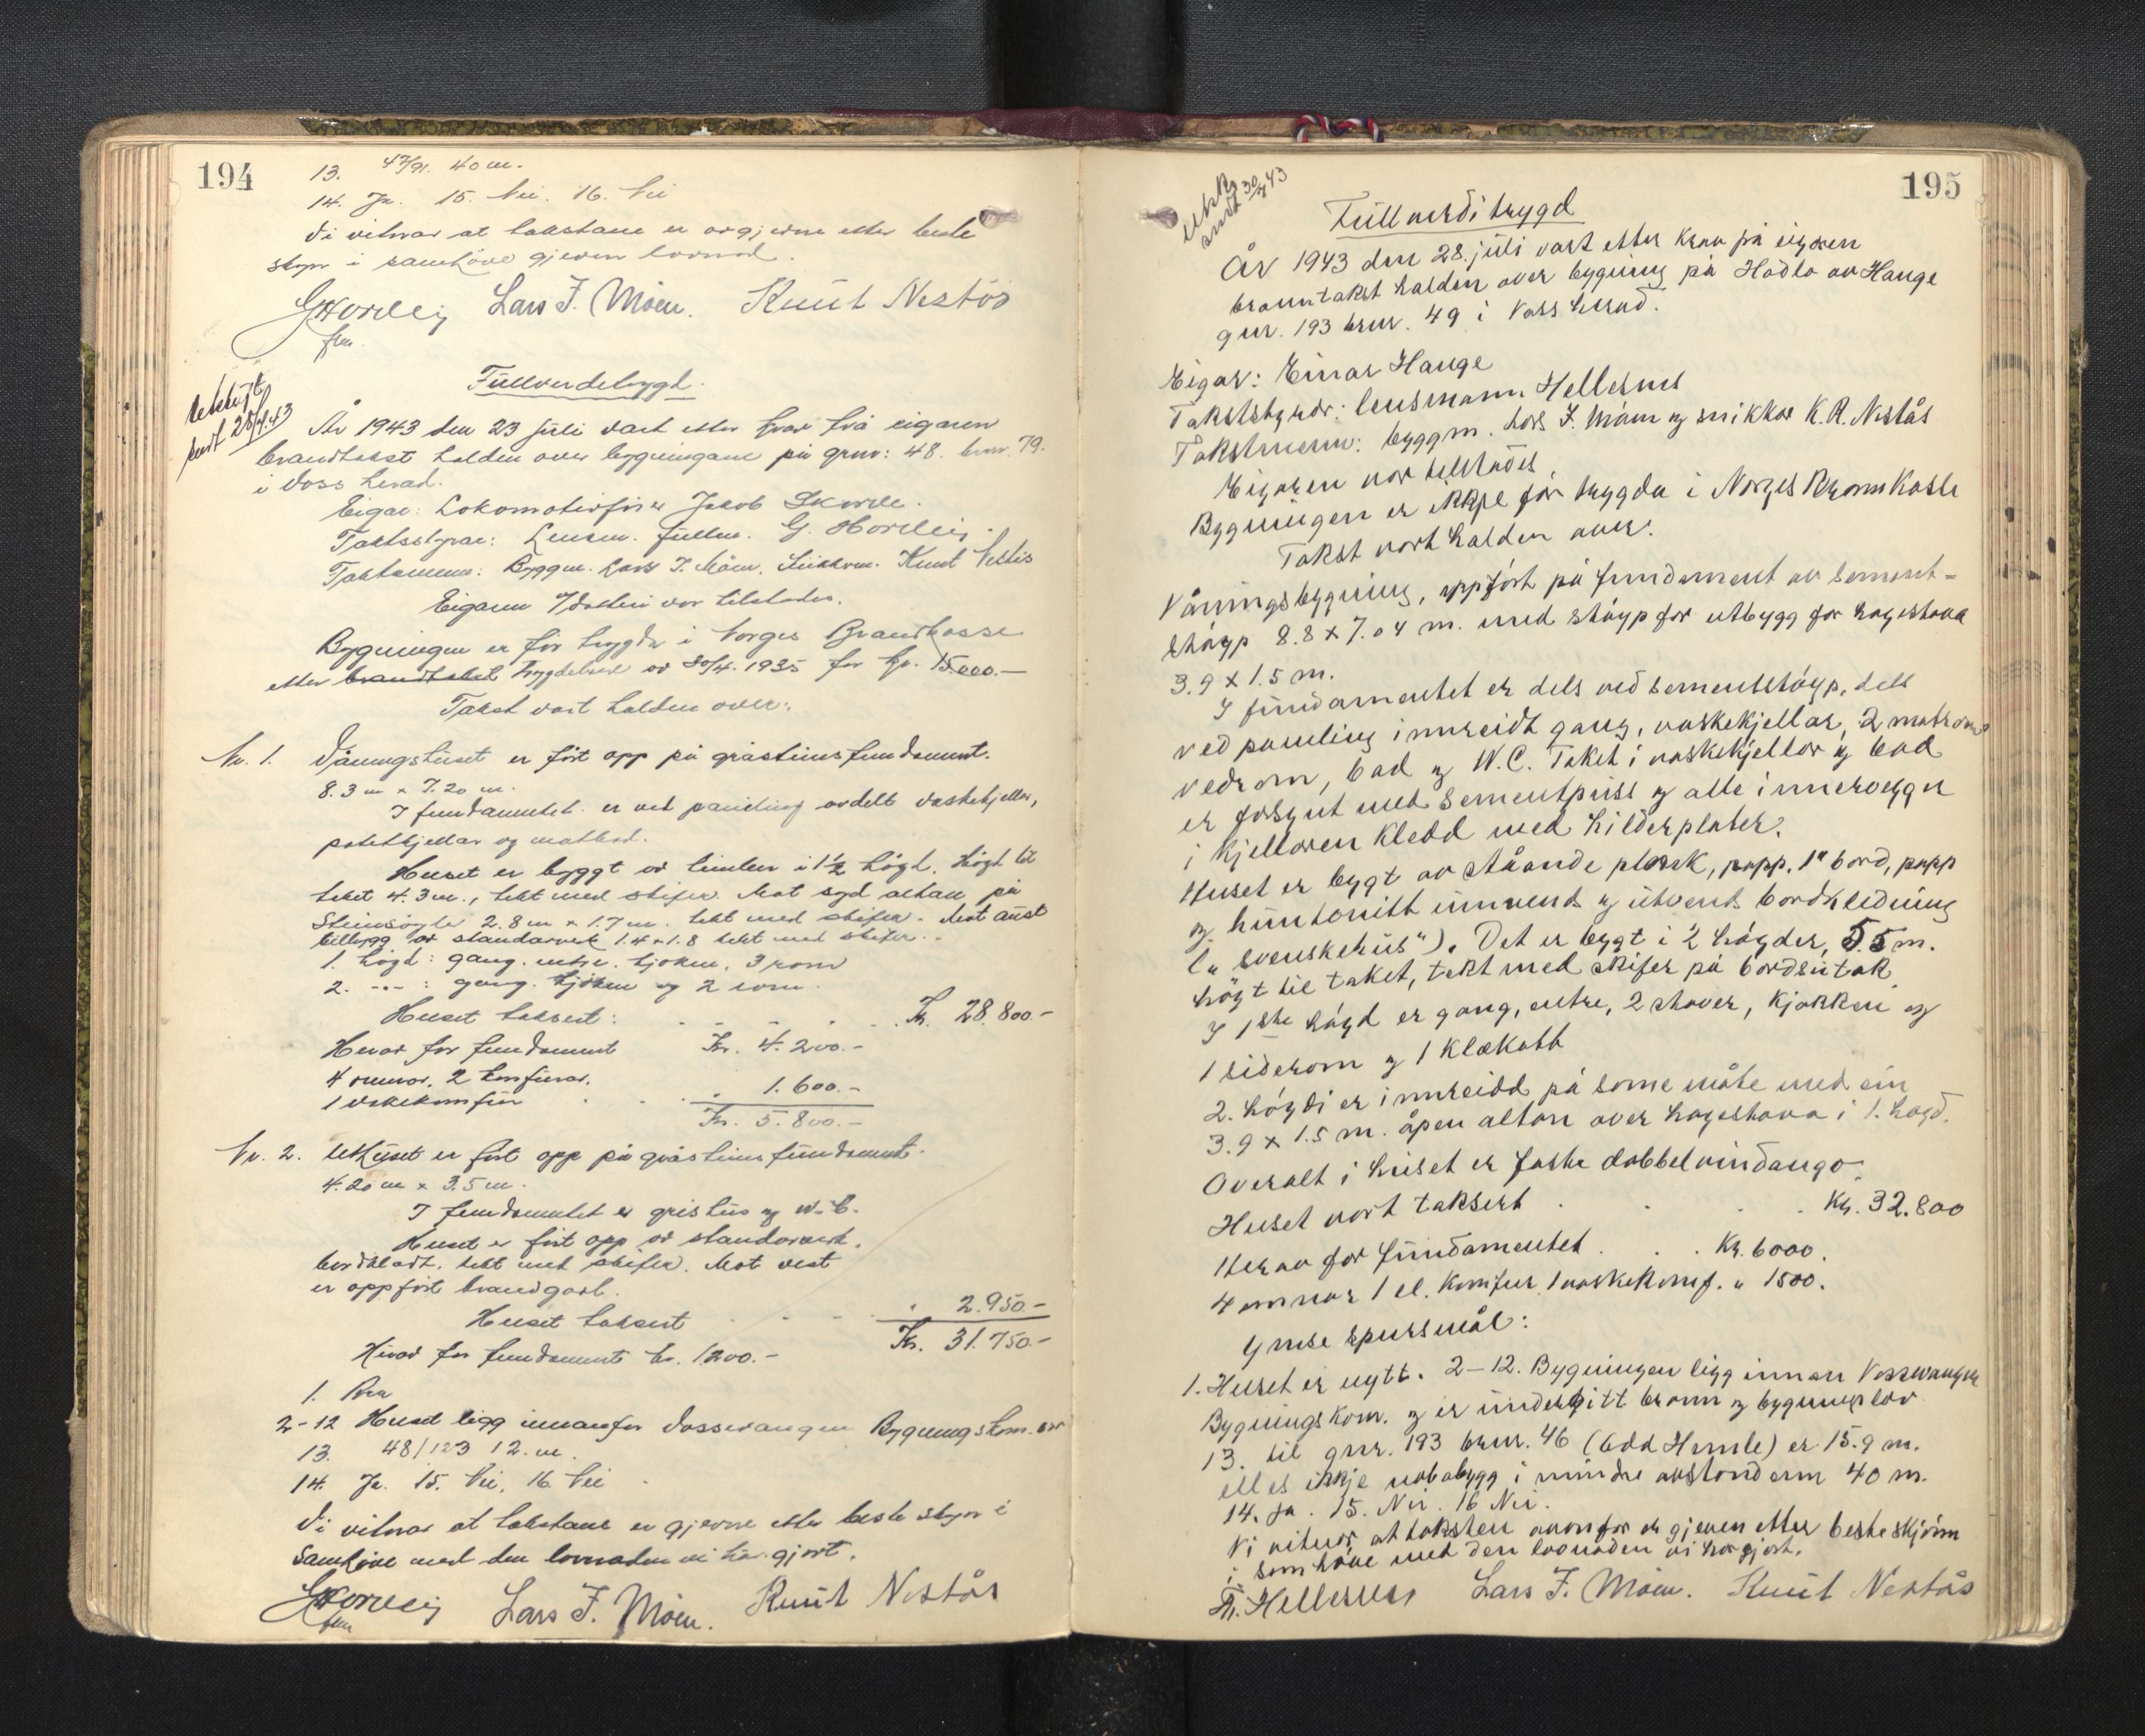 194
13. 47/91. 40 m.
14. Ja. 15. Nei. 16. Nei
Vi vitnar at takstane er avgjevne etter beste
skyn i samhøve gjeven lovnad.
GHorvei Lars J. Møen. Knut Nestås
fm.
Utskrift
sendt 28/7.43
Fullverdetrygd.
År 1943 den 23 juli vart etter krav frå eigaren
brandtakst halden over bygningane på grnr: 48. brnr. 79.
i Voss herad.
Eigar: Lokomotivførar Jakob Skorve.
Takststyrar: Lensm. fullm. G. Horvei.
Takstmenn: Byggm. Lars J. Møen. Snikkarm. Knut Nestås
Eigaren var tilstades.
Bygningen er før trygda i Norges Brandkasse
etter brandtakst trygdebrev av 30/4. 1935 for kr. 15.000.-
Takst vart halden over:
Nr. 1. Våningshuset er ført opp på gråsteinsfundament.
8.3 m x 7.20 m.
I fundamentet er ved paneling avdelt vaskekjellar,
potetkjellar og matbod.
Huset er bygt av timber i 1½ høgd. Høgd til
taket 4.3 m., tekt med skifer. Mot syd altan på
Steinsøyle 2.8 m x 1.7 m. tekt med skifer. Mot aust
tilbygg av standarverk 1.4 x 1.8 tekt med skifer.
1. høgd: gang. entre. kjøken, 3 rom
2. -"- : gang. kjøken og 2 rom.
Huset taksert: Kr. 28.800.-
Herav for fundament Kr. 4.200.-
4 omnar. 2 komfurar.
1 vaskekomfur " 1.600.-
Kr. 5.800.-
Nr. 2. Uthuset er ført opp på gråsteinsfundament.
4.20 m x 3.5 m.
I fundamentet er grishus og W.C.
Huset er ført opp av standarverk.
bordkledt. tekt med skifer. Mot vest
er oppført brandgavl.
Huset taksert " 2.950.-
Kr. 31.750.-
Herav for fundament kr. 1200.-
1. Bra
2-12 Huset ligg innanfor Vossevangen Bygningskom. 
13. 48/123 12. m.
14. Ja. 15. Nei. 16. Nei
Vi vitnar at takstane er gjevne etter beste skyn i
samhøve med den lovnaden vi har gjort.
GHorvei Lars J. Møen. Knut Nestås
fm
195
Utskr.
sendt 30/7 43
Fullverditrygd
År 1943 den 28. juli vart etter krav på eigaren
branntakst halden over bygning på Hadla av Hauge
gnr. 193 brnr. 49 i Voss herad.
Eigar: Einar Hauge
Takststyrar: lensmann Hellesnes
Takstmenn: byggm. Lars J. Møen og snikkar K. R. Nestås
Eigaren var tilstades.
Bygningen er ikkje før trygda i Norges Brannkasse
Takst vart halden over:
Våningsbygning, oppført på fundament av sement-
støyp 8.8 x 7.04 m. med støyp for utbygg for hagestova
3.9 x 1.5 m.
I fundamentet er dels ved sementstøyp, dels
ved paneling innreidt gang, vaskekjellar, 2 matrom
vedrom, bad og W.C. Taket i vaskekjellar og bad
er forsynt med sementpuss og alle innervegger
i kjellaren kledd med hilderplater.
Huset er bygt av ståande plank, papp, 1" bord, papp
og huntonitt innvends og utvends bordkledning
("svenskehus"). Det er bygt i 2 høgder, 5.5 m.
høgt til taket, tekt med skifer på bordsutak
I 1ste høgd er gang, entre, 2 stover, kjøkken og
1 siderom og 1 klækott
2. høgdi er innreidd på same måte med ein
3.9 x 1.5 m. åpen altan over hagestova i 1. høgd.
Overalt i huset er faste dobbelvindaugo
Huset vart taksert Kr. 32.800
Herav for fundamentet Kr. 6000.
4 omnar 1 el. komfur 1 vaskekomf. " 1500.
Ymse spursmål:
1. Huset er nytt. 2-12. Bygningen ligg innan Vossevangen
Bygningskom. og er undergitt brann og bygningslov
13. til gnr. 193 brnr. 46 (Odd Hernle) er 15.9 m.
elles ikkje nabobygg i mindre avstand enn 40 m.
14. Ja. 15. Nei. 16 Nei.
Vi vitnar at taksten ovanfor er gjeven etter beste skjønn
i samhøve med den lovnaden vi har gjort.
Hellesnes Lars J. Møen. Knut Nestås